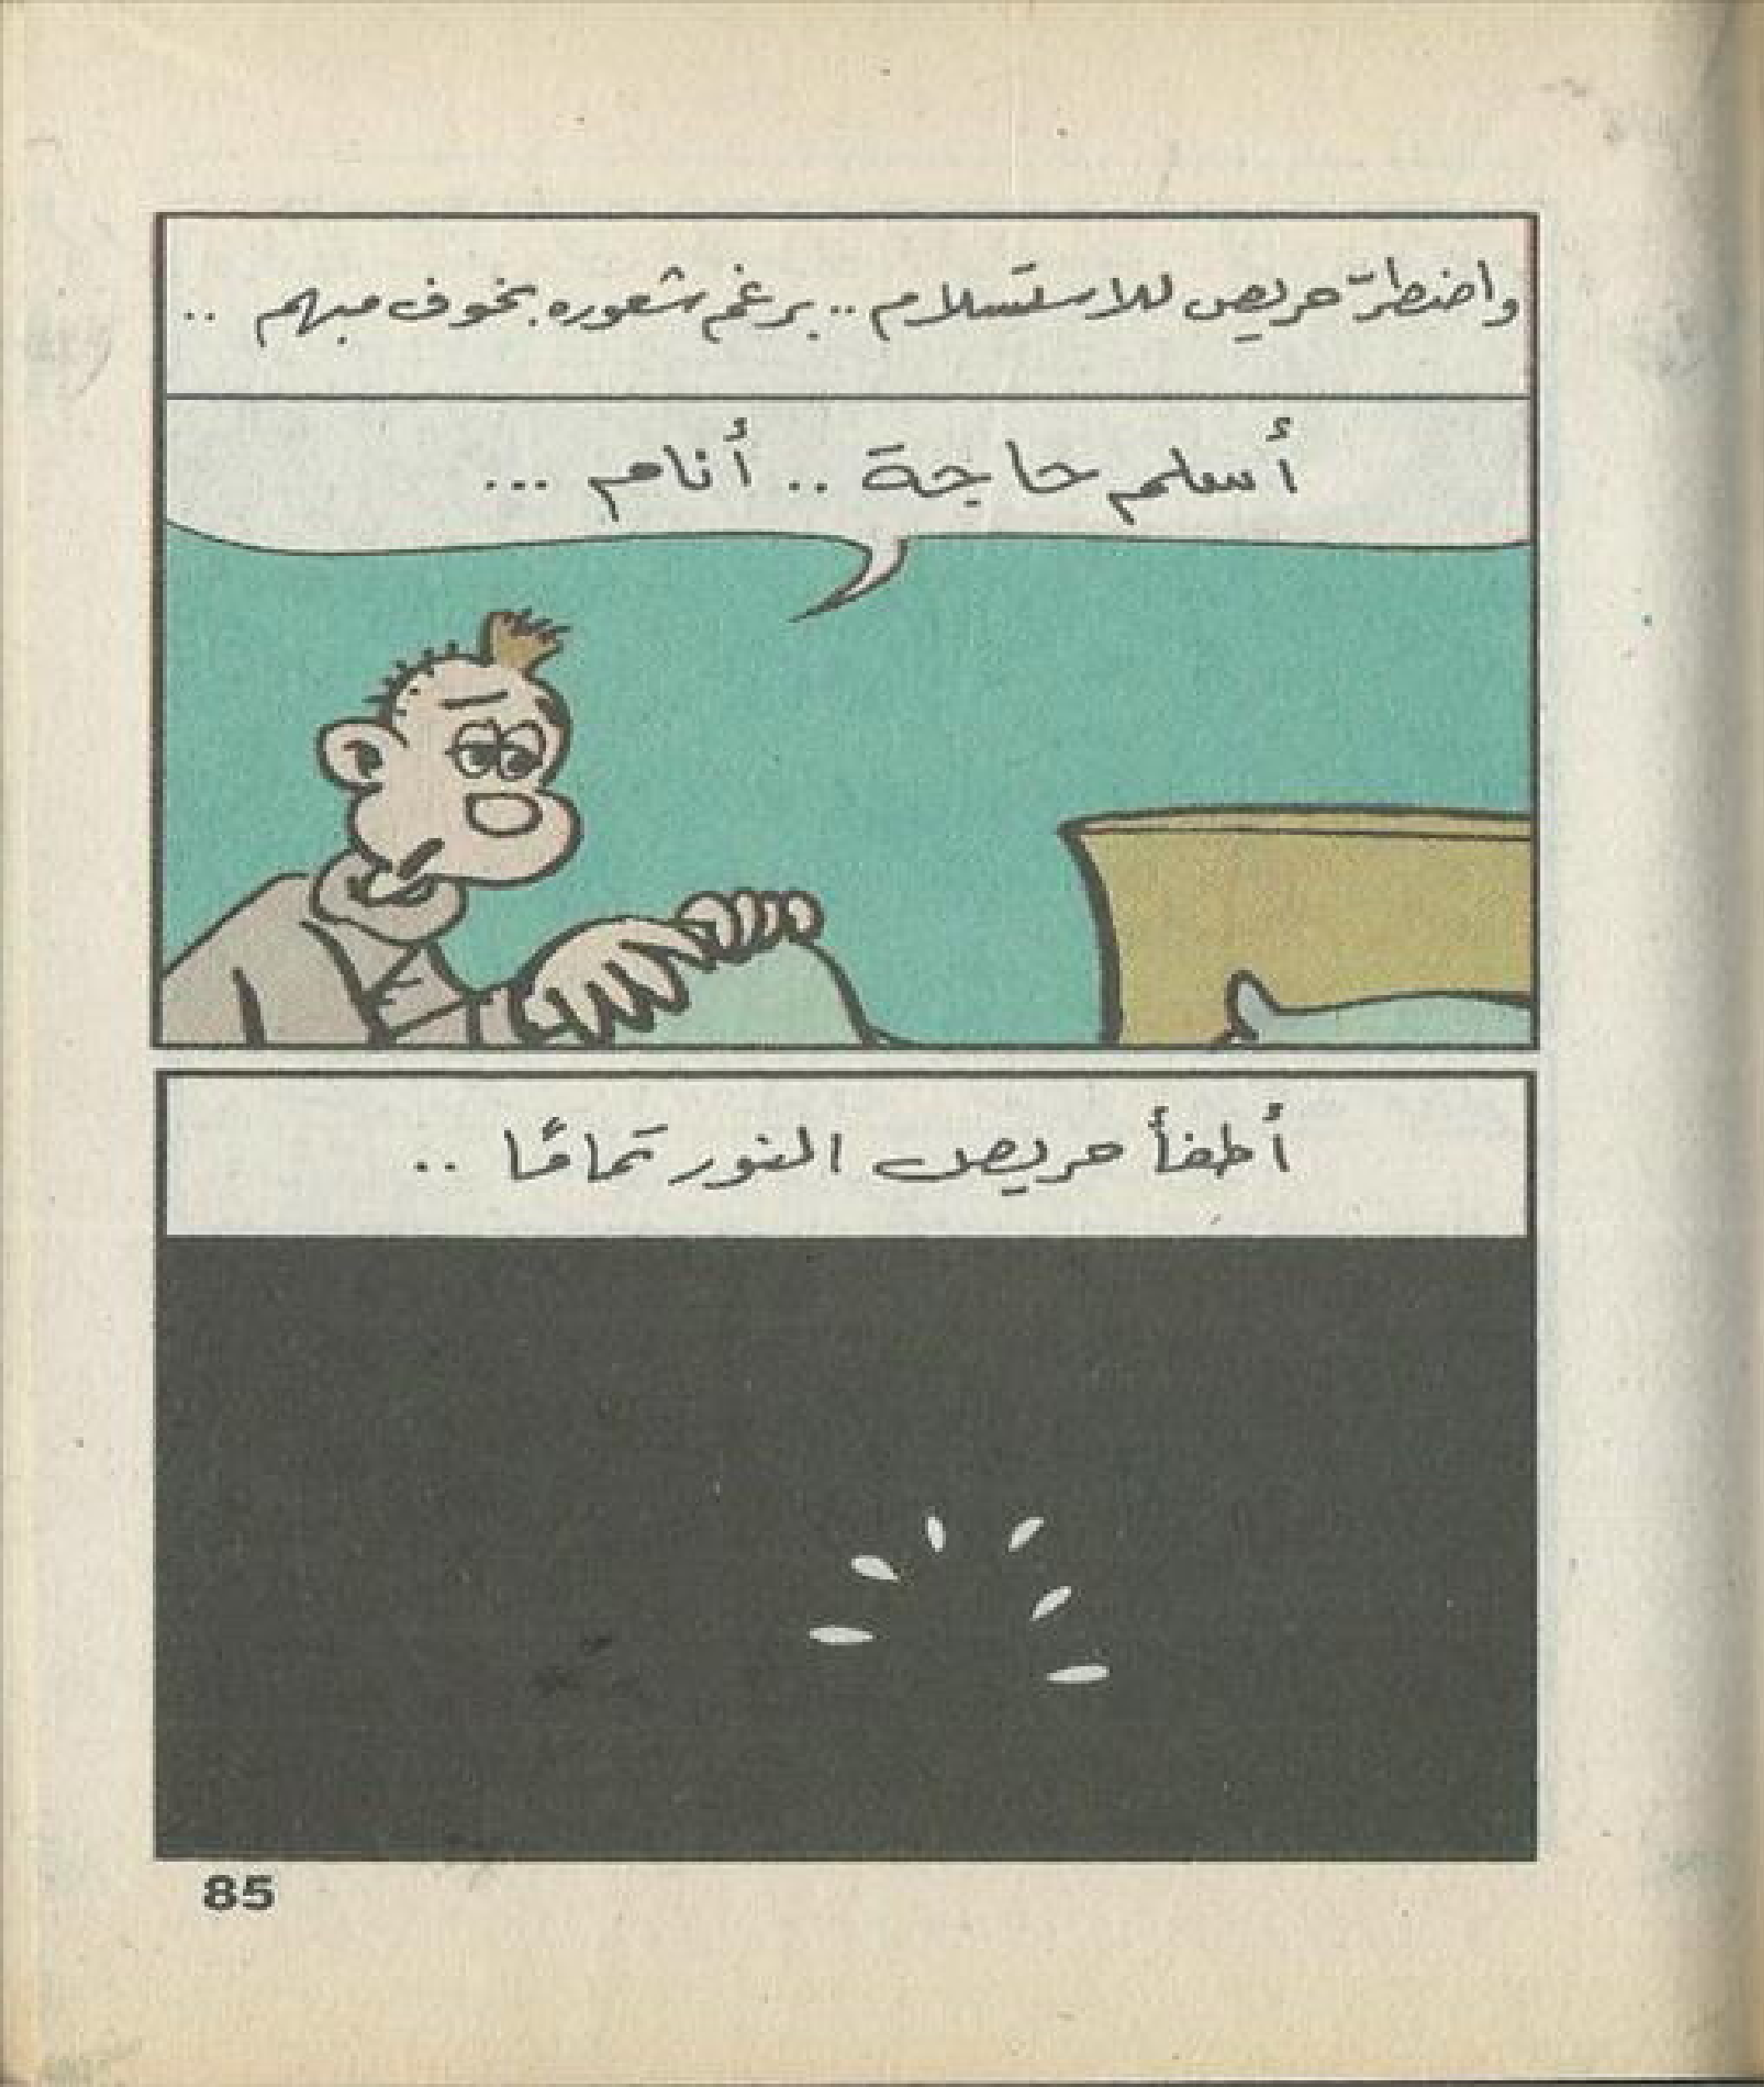 واضطرّ حريص للاستسلام .. برغم شعوره بخوف مبهم ..
أسلم حاجة .. أنام ...
أطفأ حريص النور تمامًا ..
85